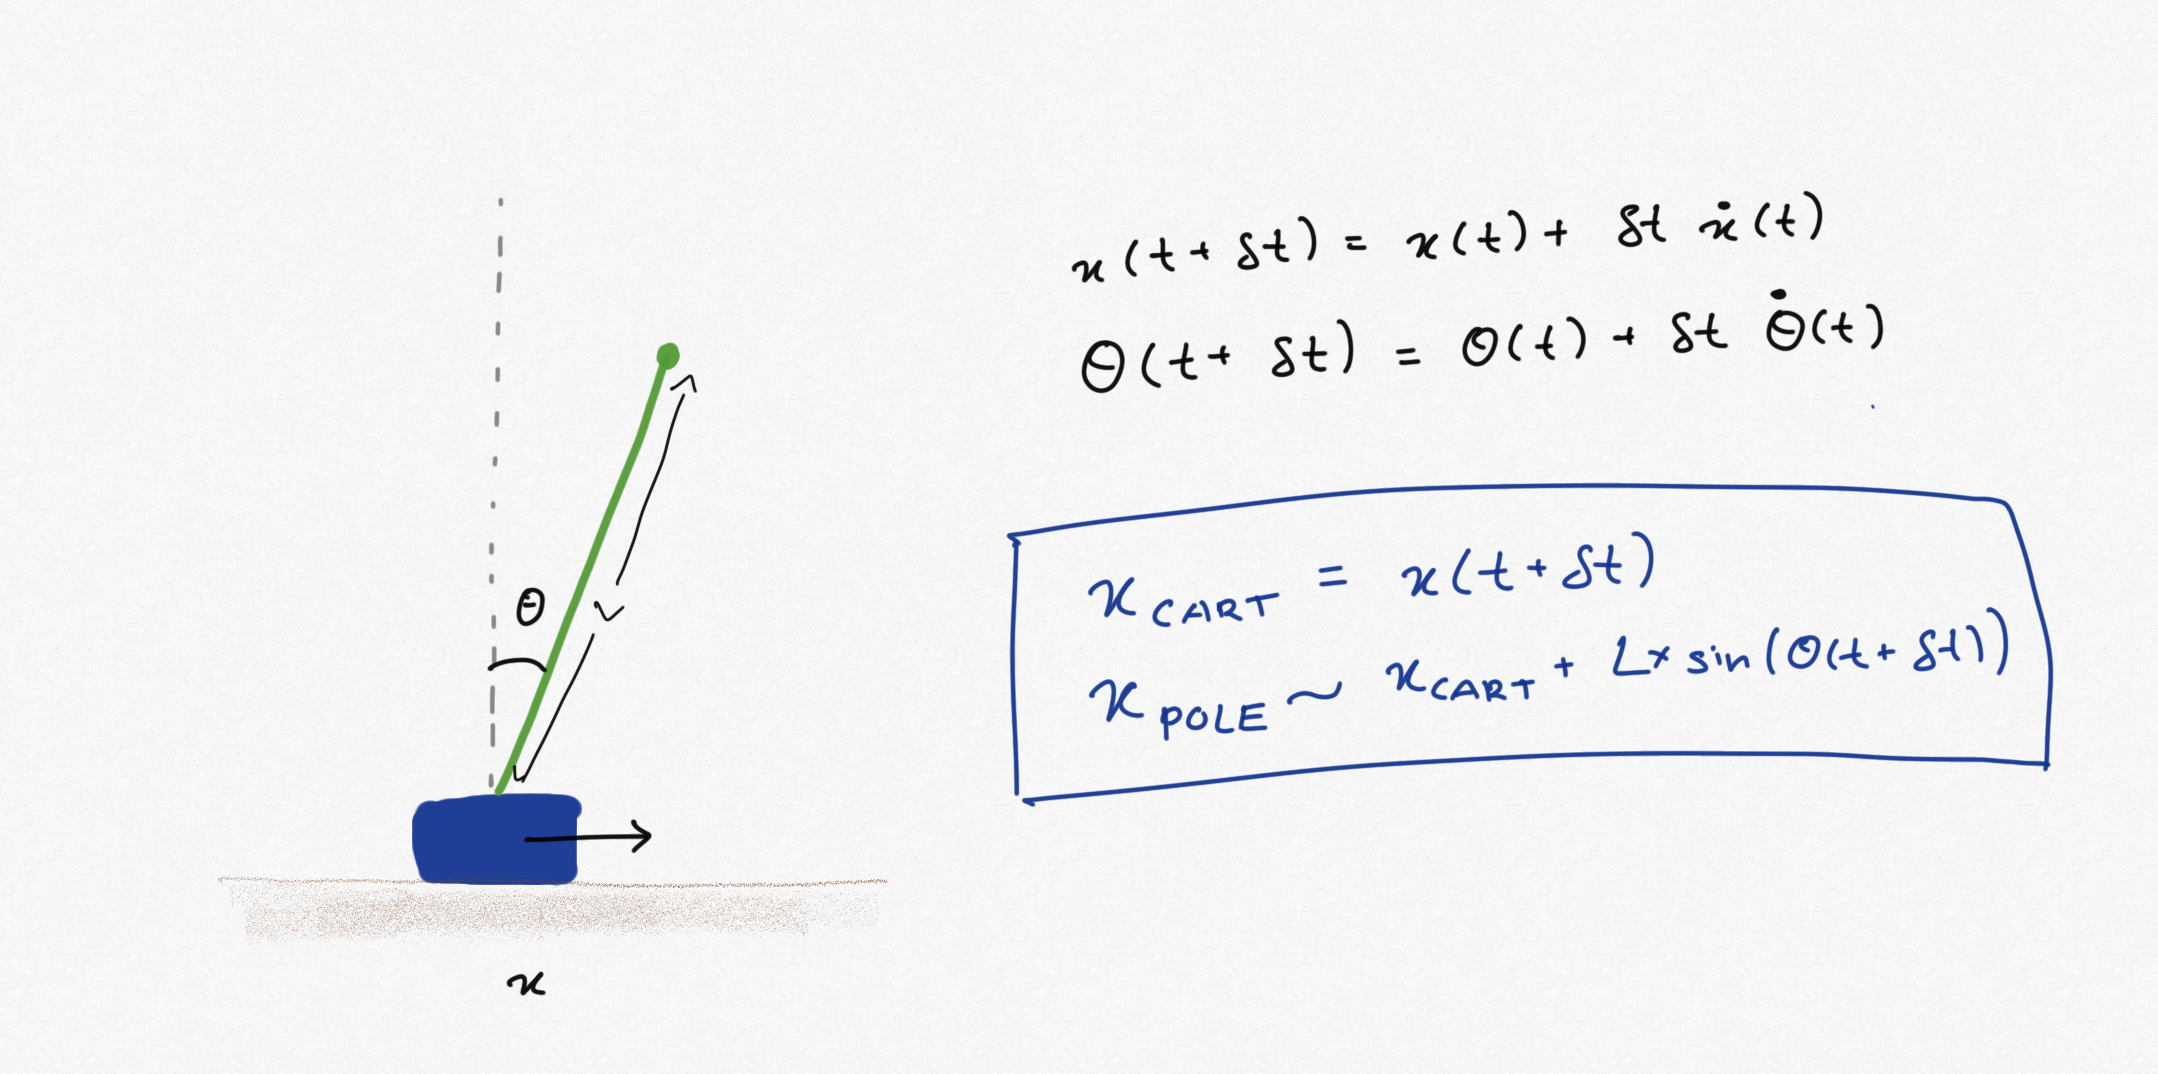 θ
L
x
x(t + δt) = x(t) + δt ẋ(t)
θ(t + δt) = θ(t) + δt θ̇(t)
x CART = x(t + δt)
x POLE ~ x CART + L x sin(θ(t + δt))